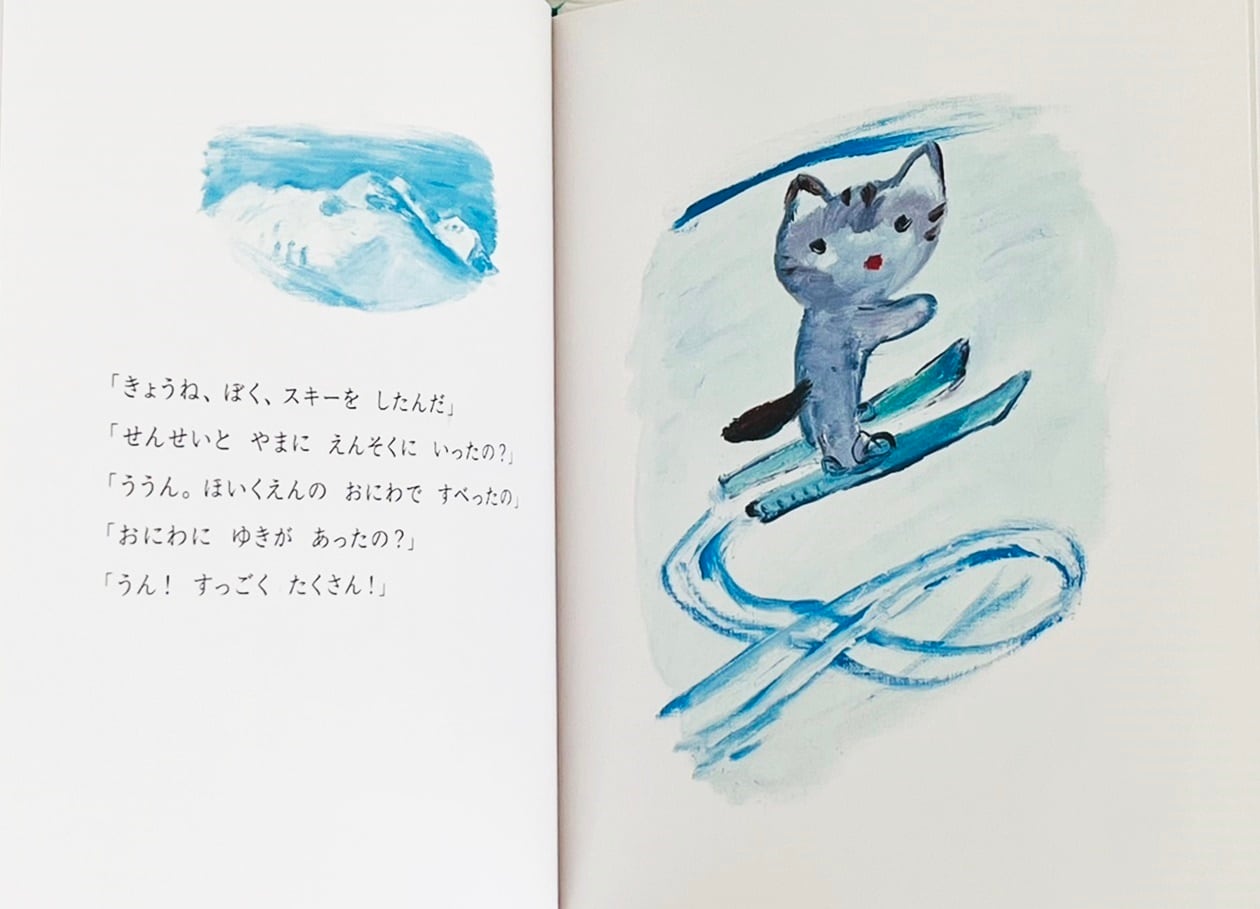 「きょうね、ぼく、スキーを　したんだ」
「せんせいと　やまに　えんそくに　いったの？」
「ううん。ほいくえんの　おにわで　すべったの」
「おにわに　ゆきが　あったの？」
「うん！　すっごく　たくさん！」